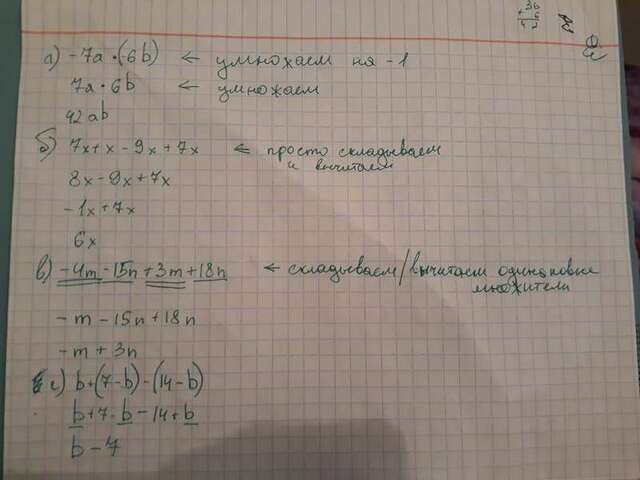 +36
6
42
а) -7a·(6b) ← умножаем на -1
7a·6b ← умножаем
42ab
б) 7x+x-9x+7x ← просто складываем
и вычитаем
8x-9x+7x
-1x+7x
6x
в) -4m-15n+3m+18n ← складываем/вычитаем одинаковые
множители
-m-15n+18n
-m+3n
г) b+(7-b)-(14-b)
b+7-b-14+b
b-7